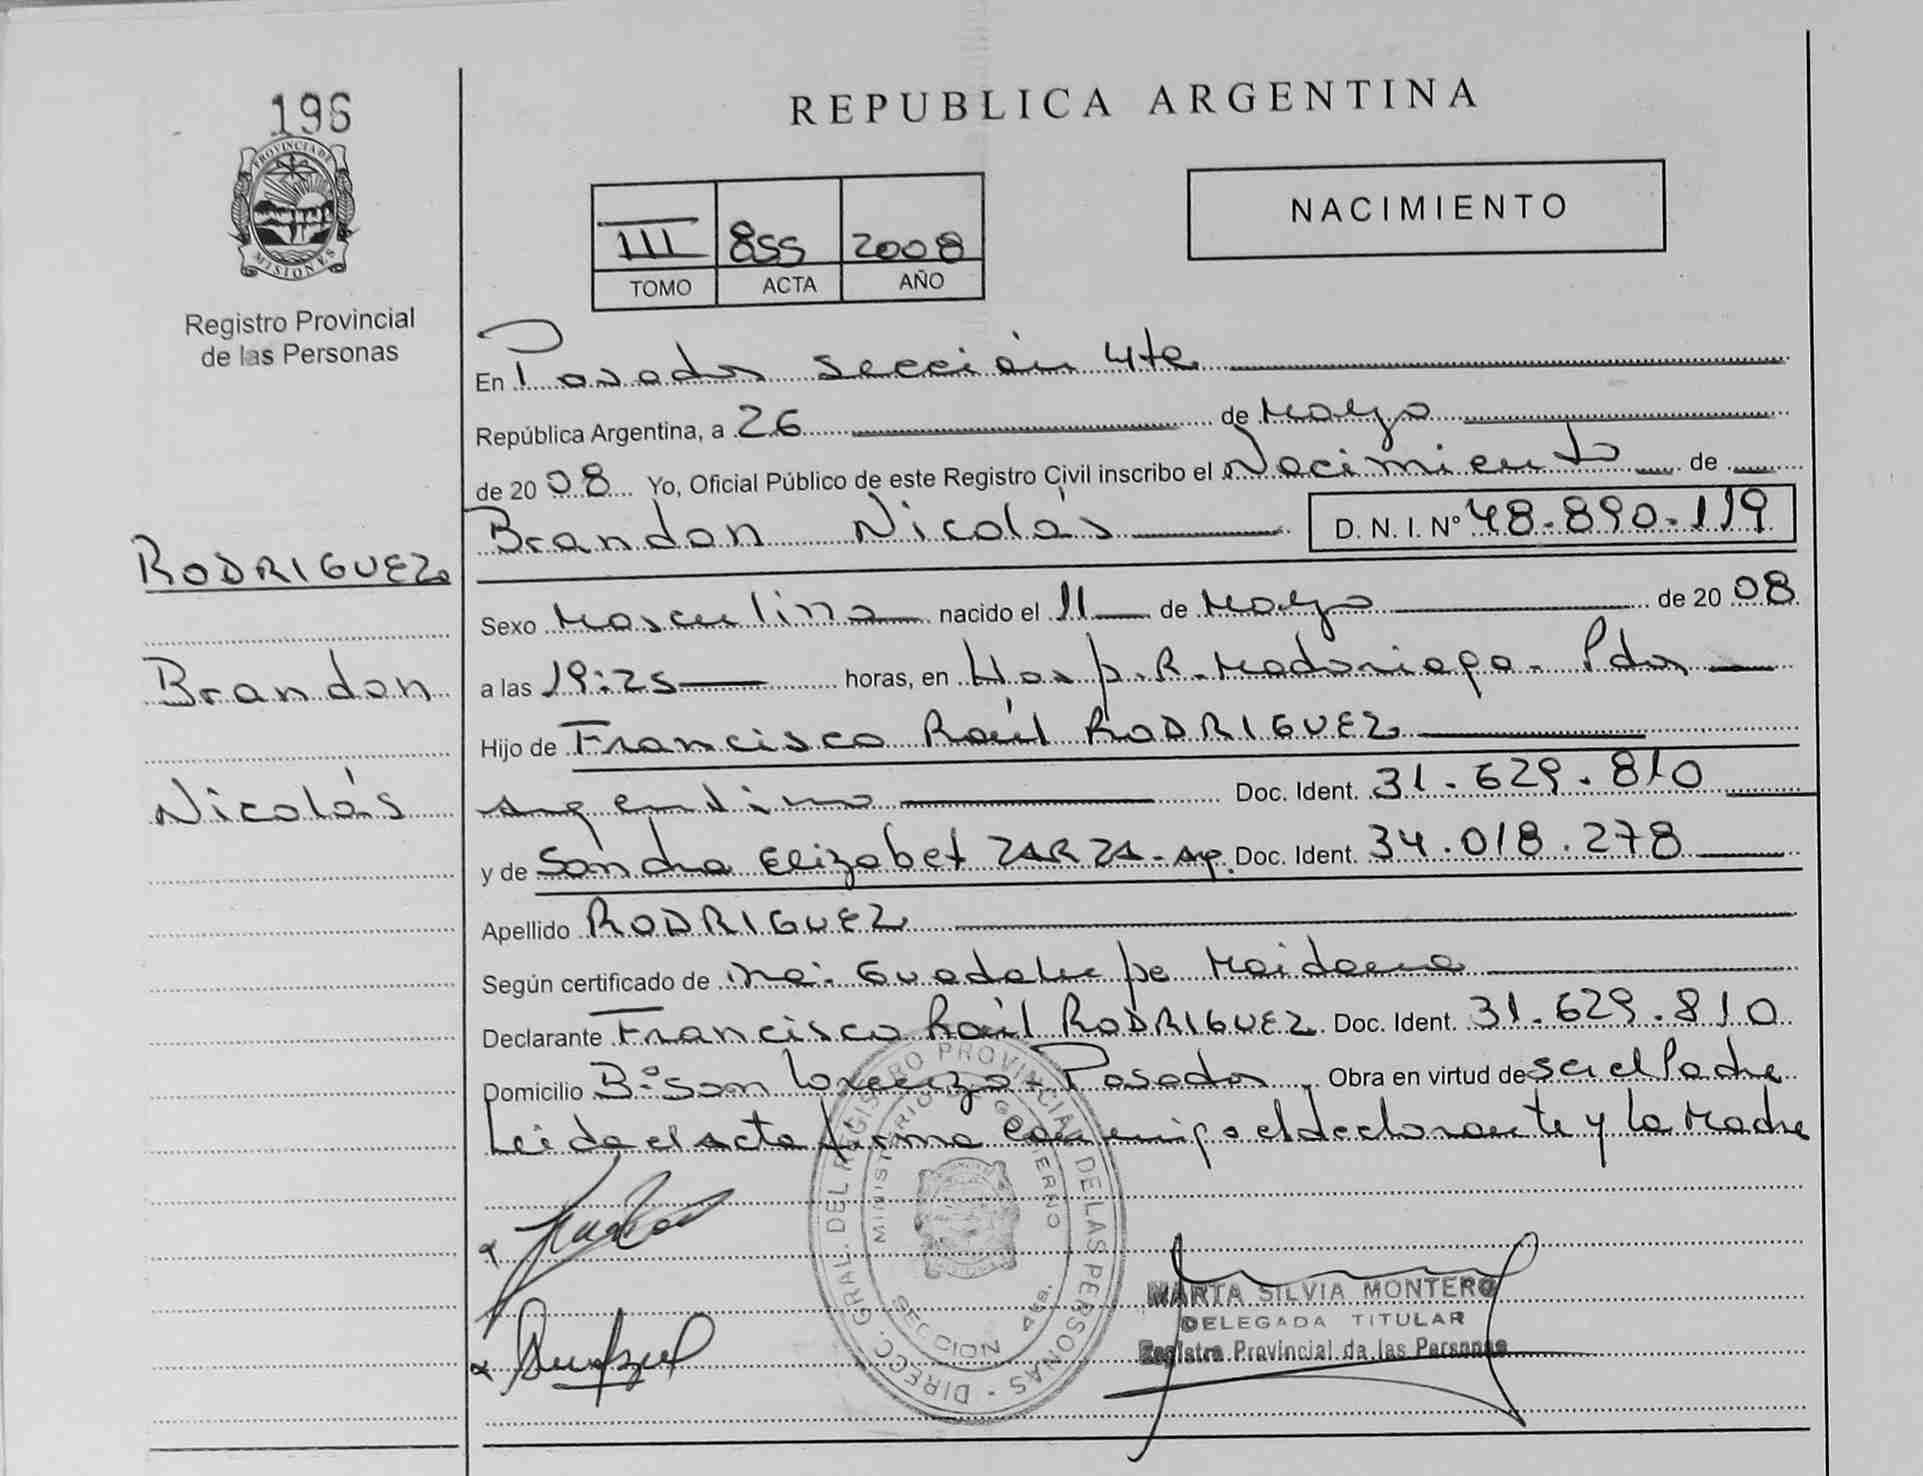 196
REPUBLICA ARGENTINA
PROVINCIA DE
MISIONES
Registro Provincial
de las Personas
III 855 2008
TOMO ACTA AÑO
NACIMIENTO
En Posadas sección 4ta
República Argentina, a 26 de Marzo
de 2008 Yo, Oficial Público de este Registro Civil inscribo el Nacimiento de
Brandon Nicolás D. N. I. Nº 48.890.119
RODRIGUEZ
Brandon
Nicolás
Sexo Masculino nacido el 11 de Marzo de 2008
a las 19:25 horas, en Hosp. R. Madariaga - Pdas
Hijo de Francisco Raúl RODRIGUEZ
Argentino Doc. Ident. 31.629.810
y de Sandra Elizabet ZARZA - Ar. Doc. Ident. 34.018.278
Apellido RODRIGUEZ
Según certificado de Guadalupe Maidana
Declarante Francisco Raúl RODRIGUEZ Doc. Ident. 31.629.810
Domicilio Bº San Lorenzo - Posadas Obra en virtud de ser el Padre
Leida el acta firma conmigo el declarante y la Madre
DIRECC. GRAL. DEL REGISTRO PROVINCIAL DE LAS PERSONAS
MINISTERIO DE GOBIERNO
SECCION 4ta.
MARTA SILVIA MONTERO
DELEGADA TITULAR
Registro Provincial de las Personas